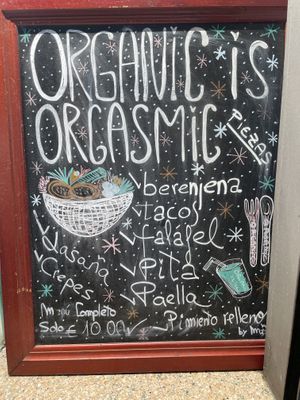 ORGANIC is
ORGASMIC
PiZZAS
berenjena
tacos
falafel
Pita
Paella
Lasaña
Crepes
Completo
Solo € 10.00
Pimiento relleno
by